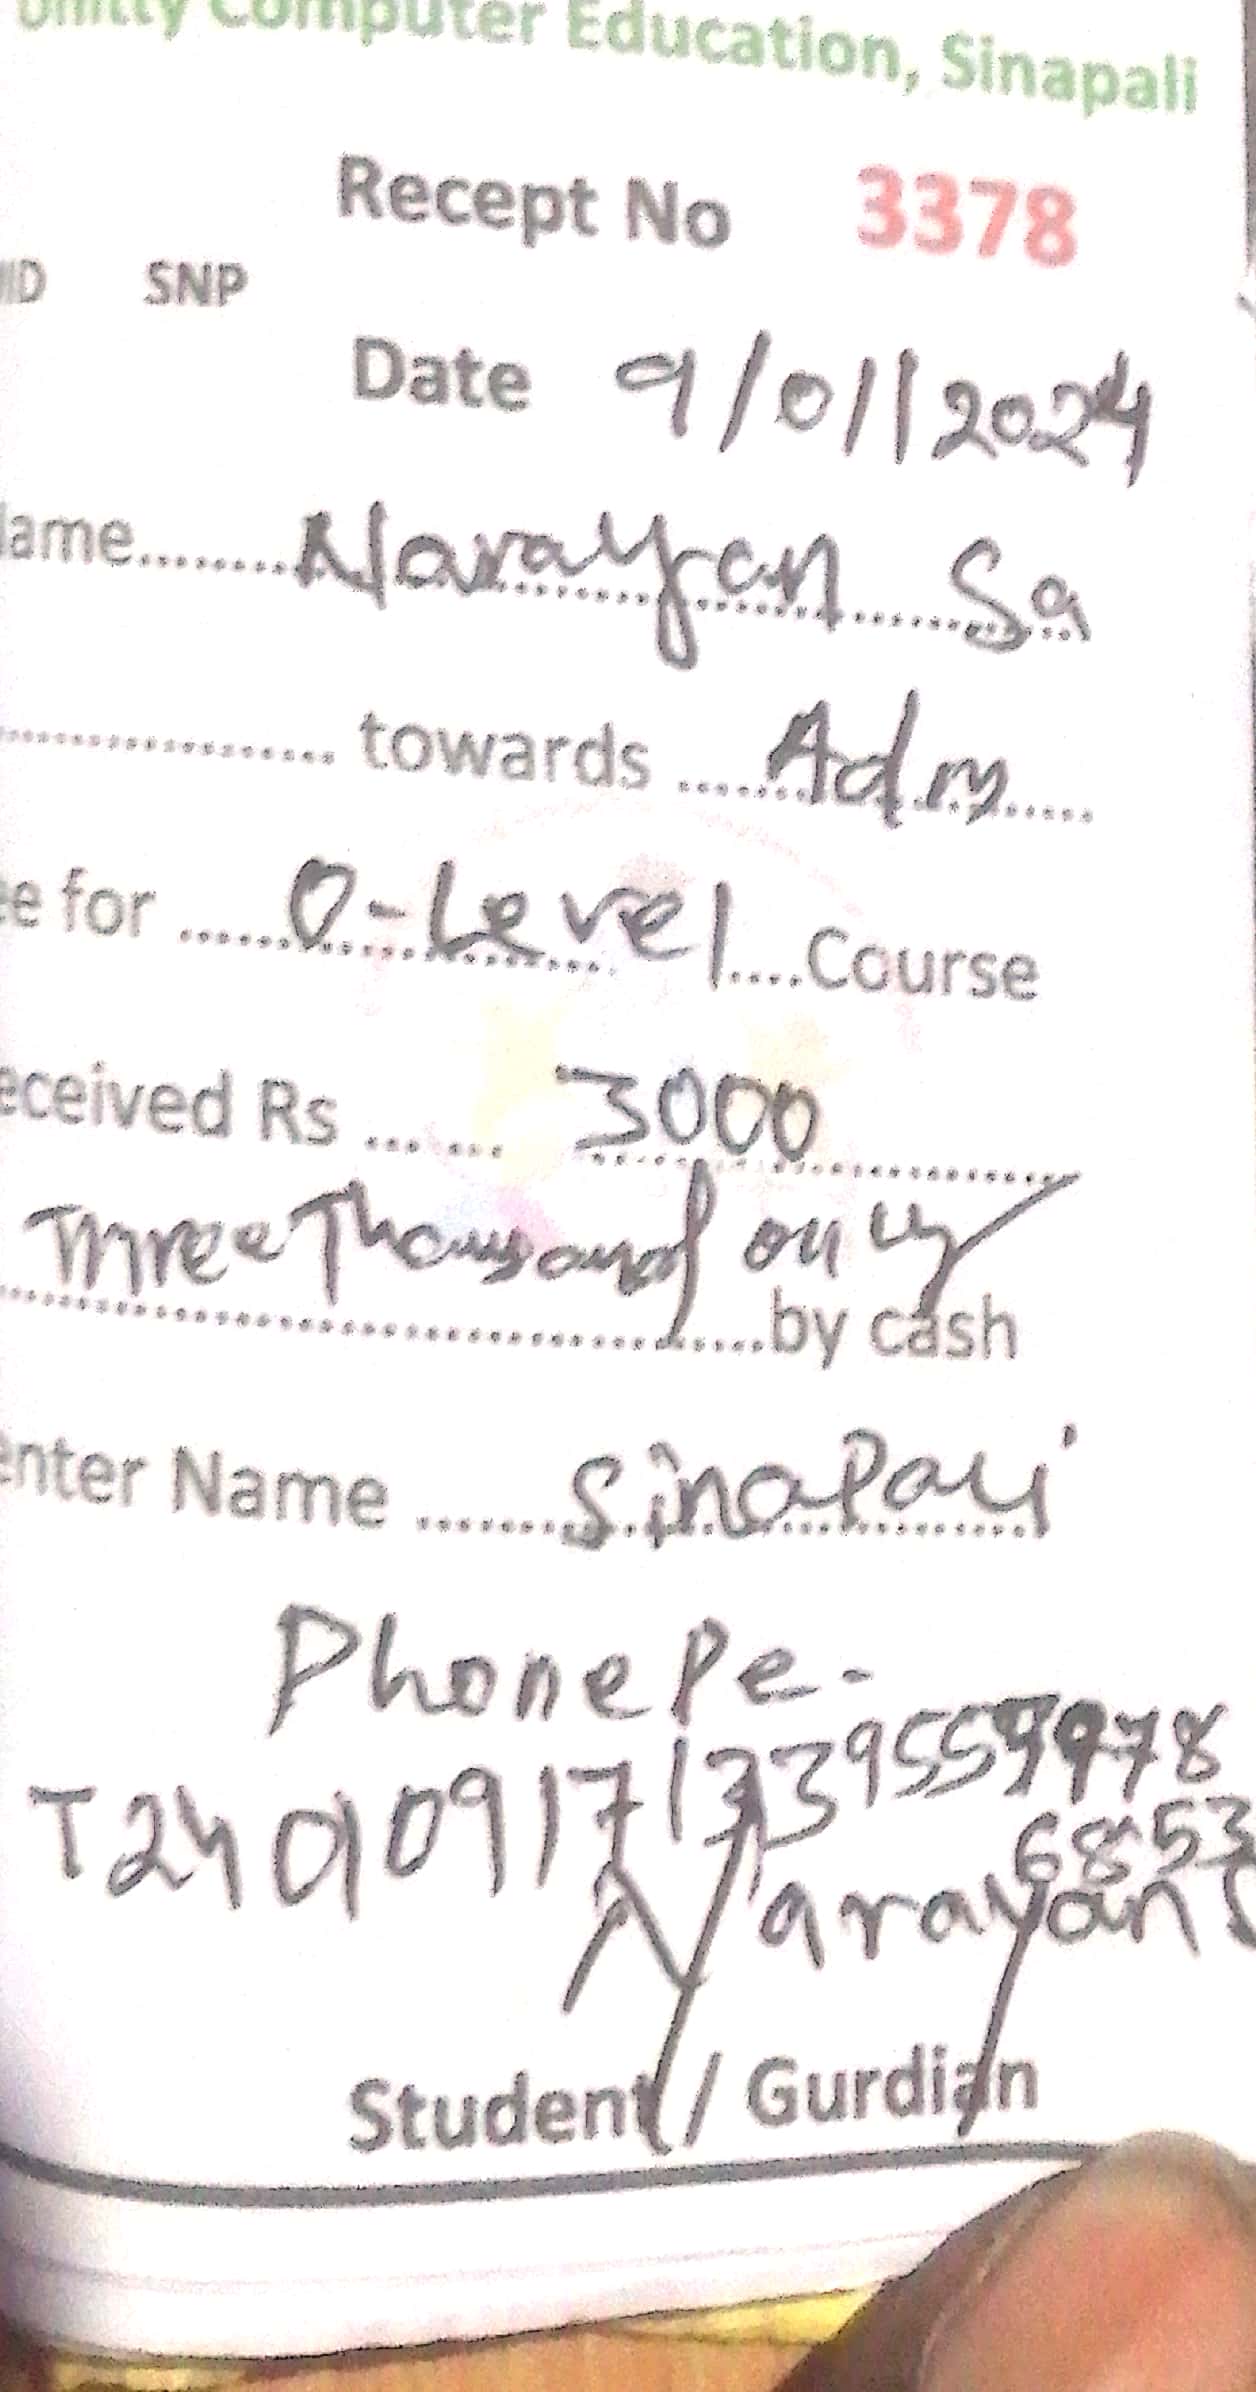 Computer Education, Sinapali
Recept No 3378
ID SNP
Date 9/01/2024
ame........Narayan Sa
.................... towards ....Adm.....
e for .....O-Level....Course
eceived Rs ....... 3000
Three Thousand only
....................by cash
enter Name ........Sinapali
PhonePe-
Narayan S
Student / Gurdian